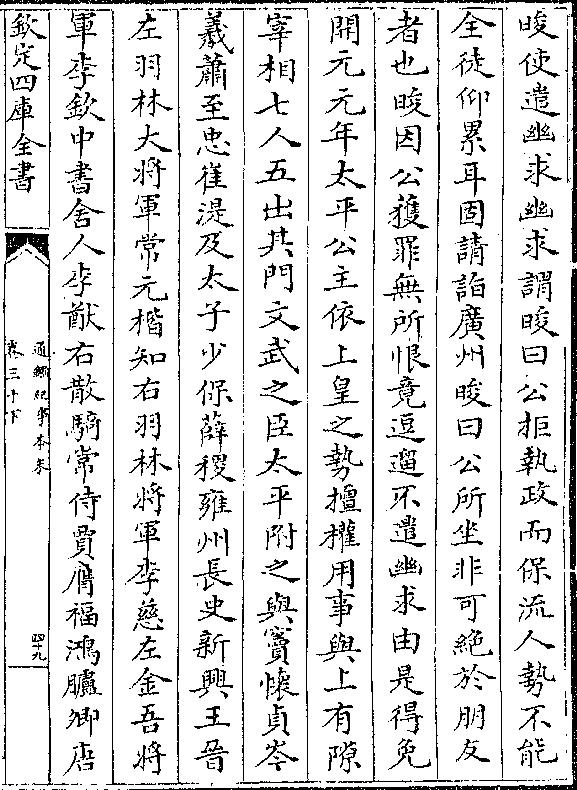 晙使遣幽求幽求謂晙曰公拒執政而保流人勢不能
全徒仰累耳固請詣廣州晙曰公所坐非可絶於朋友
者也晙因公獲罪無所恨竟逗遛不遣幽求由是得免
開元元年太平公主依上皇之勢擅權用事與上有隙
宰相七人五出其門文武之臣太平附之與竇懐貞岑
羲蕭至忠崔湜及太子少保薛稷雍州長史新興王晉
左羽林大將軍常元楷知右羽林將軍李慈左金吾將
軍李欽中書舍人李猷右散騎常侍賈膺福鴻臚卿唐
欽定四庫全書
通鑑紀事本末
卷三十下
四十九